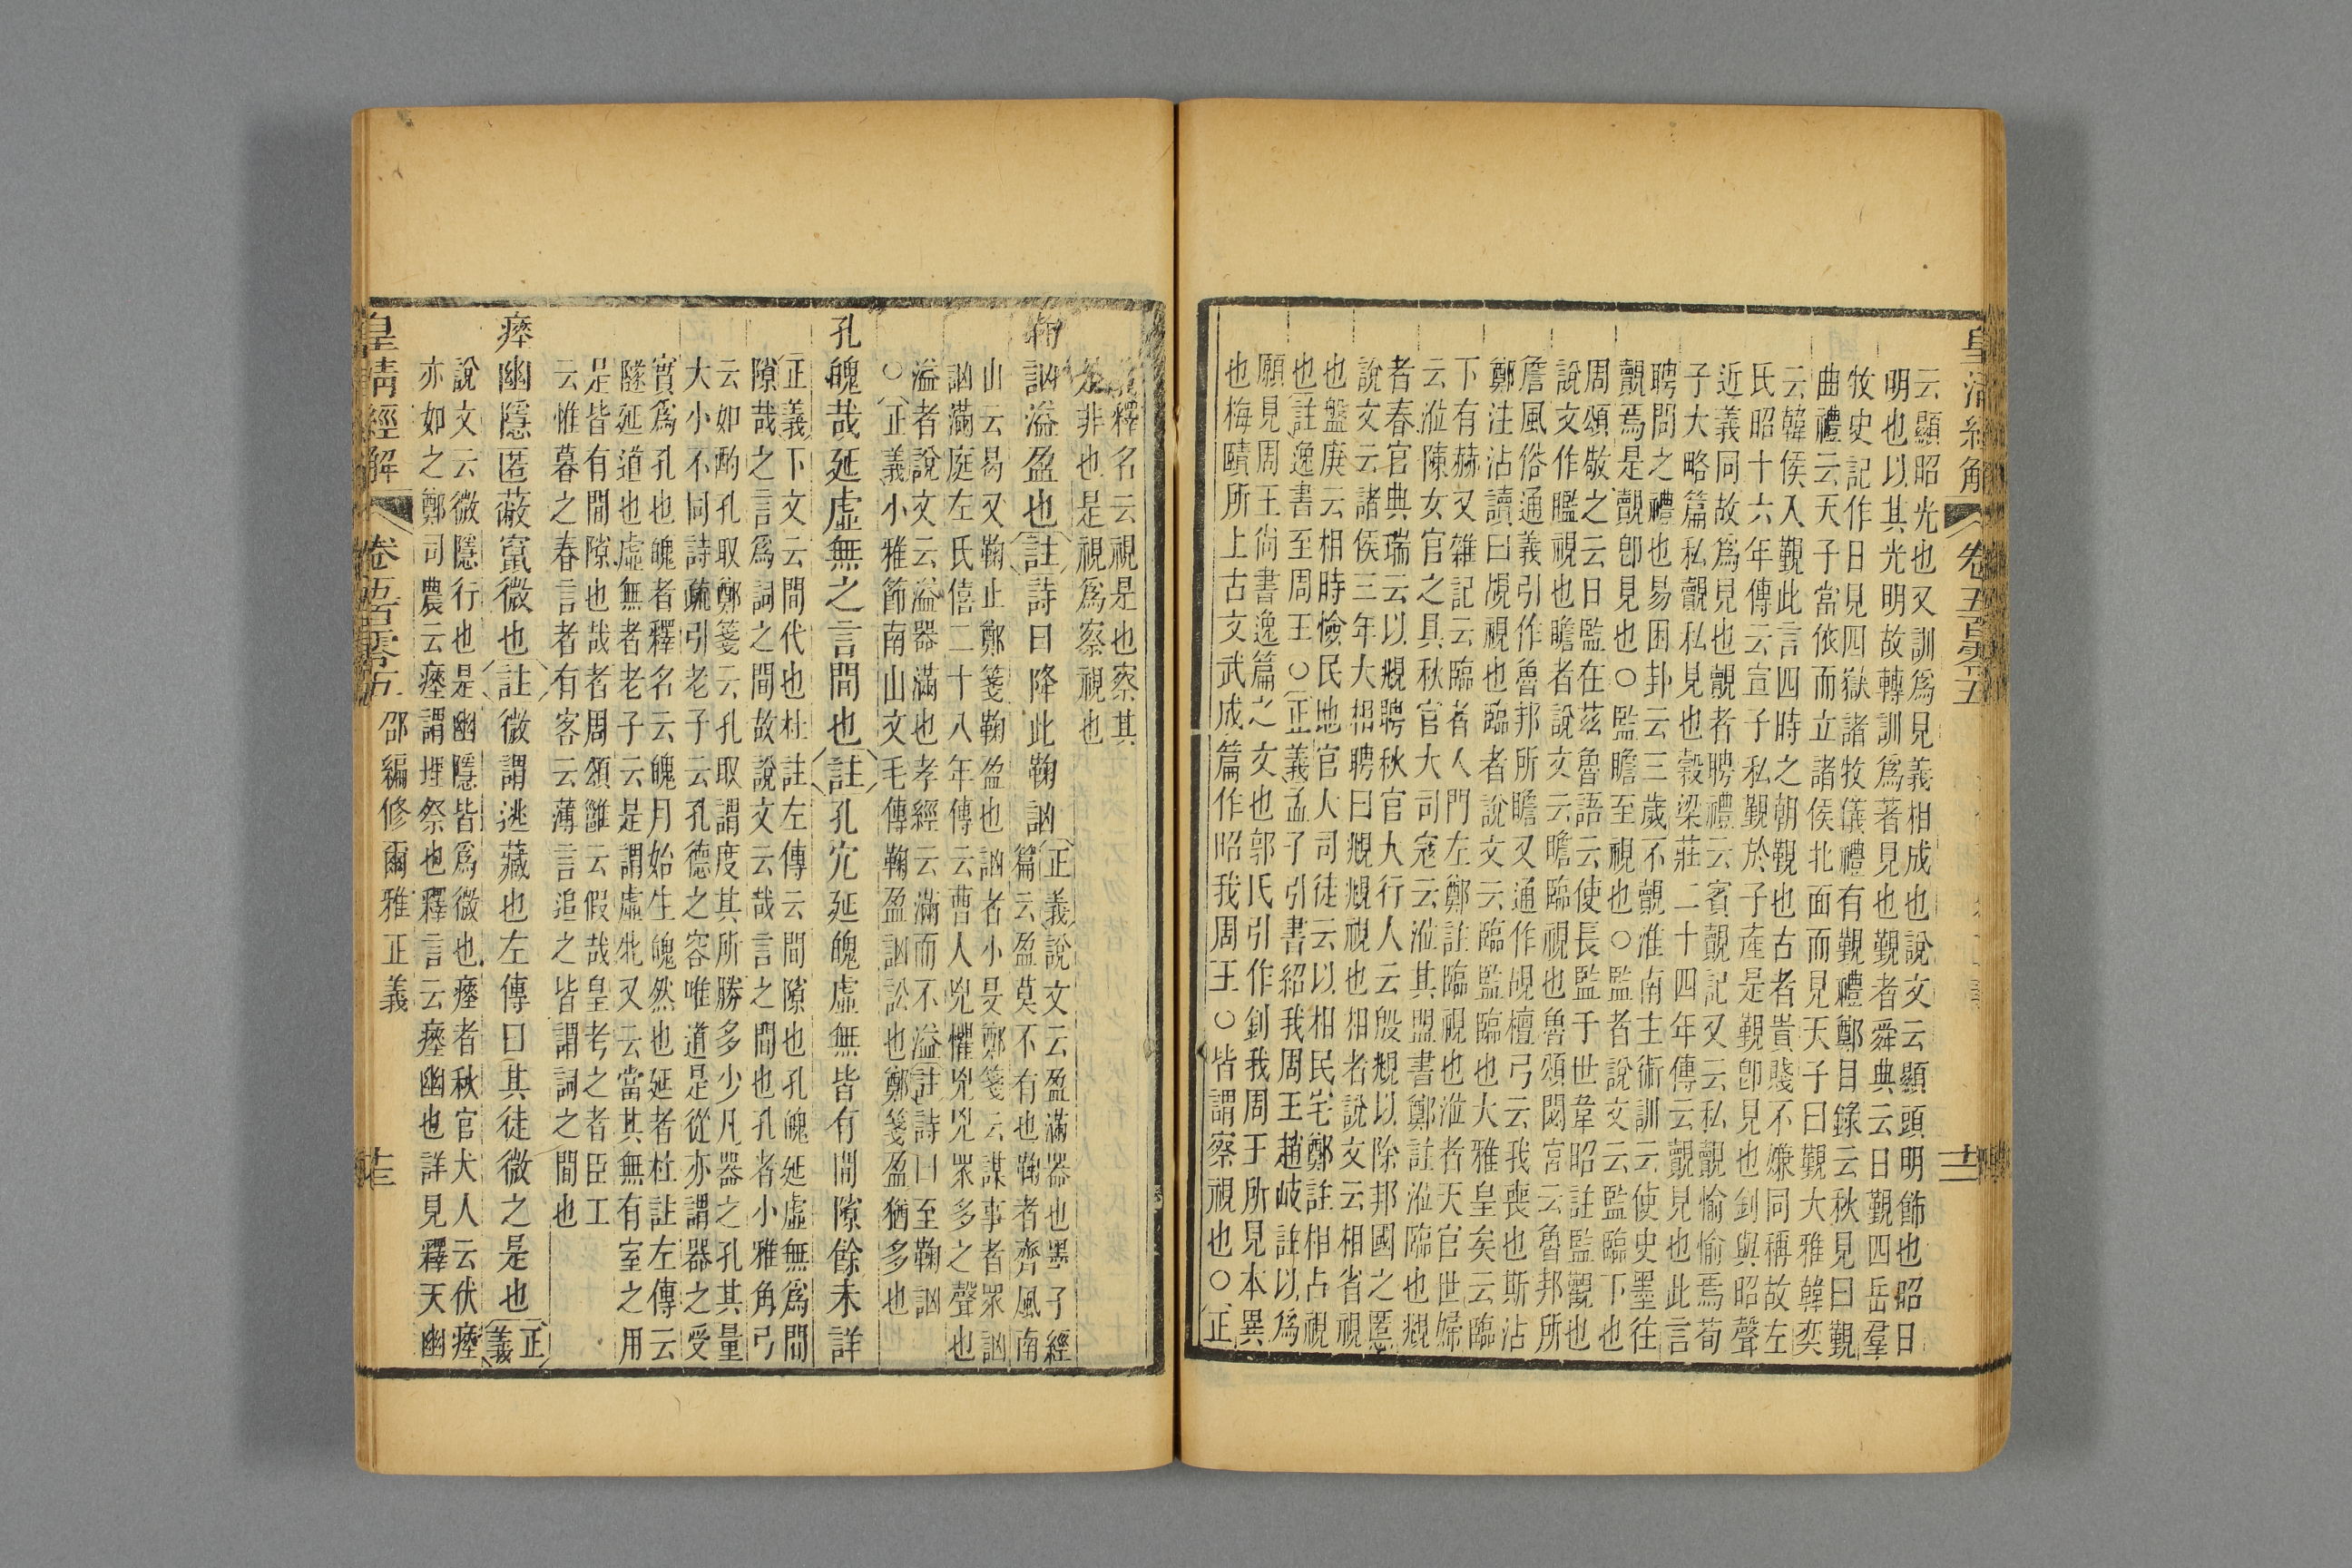 云顯昭光也又訓爲見義相成也說文云顯頭明飾也昭日
明也以其光明故轉訓爲著見也覲者舜典云日覲四岳羣
牧史記作日見四嶽諸牧儀禮有覲禮鄭目錄云秋見曰覲
曲禮云天子當依而立諸侯北面而見天子曰覲大雅韓奕
云韓侯入覲此言四時之朝覲也古者貴賤不嫌同稱故左
氏昭十六年傳云宣子私覲於子産是覲卽見也釗與昭聲
近義同故爲見也覿者聘禮云賓覿記又云私覿愉愉焉荀
子大略篇私覿私見也穀梁莊二十四年傳云覿見也此言
聘問之禮也易困卦云三歲不覿淮南主術訓云使史墨往
覿焉是覿卽見也○監瞻至視也○監者說文云監臨下也
周頌敬之云日監在茲魯語云使長監于世韋昭註監觀也
說文作䁍視也瞻者說文云瞻臨視也魯頌閟宮云魯邦所
詹風俗通義引作魯邦所瞻又通作覘檀弓云我喪也斯沾
鄭注沾讀曰覘視也臨者說文云臨監臨也大雅皇矣云臨
下有赫又雜記云臨者入門左鄭註臨視也涖者天官世婦
云涖陳女官之具秋官大司寇云涖其盟書鄭註涖臨也覜
者春官典瑞云以覜聘秋官大行人云殷覜以除邦國之慝
說文云諸侯三年大相聘曰覜覜視也相者說文云相省視
也盤庚云相時憸民地官大司徒云以相民宅鄭註相占視
也註逸書至周王○正義孟子引書紹我周王趙岐註以爲
願見周王尙書逸篇之文也郭氏引作釗我周于所見本異
也梅賾所上古文武成篇作昭我周王○皆謂察視也○正
義釋名云視是也察其
是非也是視爲察視也
鞫訩溢盈也註詩曰降此鞫訩正義說文云盈滿器也墨子經
篇云盈莫不有也鞫者齊風南
山云曷又鞫止鄭箋鞫盈也訩者小旻鄭箋云謀事者眾訩
訩滿庭左氏僖二十八年傳云曹人兇懼兇兇眾多之聲也
溢者說文云溢器滿也孝經云滿而不溢註詩曰至鞫訩
○正義小雅節南山文毛傳鞫盈訩訟也鄭箋盈猶多也
孔魄哉延虛無之言間也註孔穴延魄虛無皆有間隙餘未詳
正義下文云間代也杜註左傳云間隙也孔魄延虛無爲間
隙哉之言爲詞之間故說文云哉言之間也孔者小雅角弓
云如酌孔取鄭箋云孔取謂度其所勝多少凡器之孔其量
大小不同詩疏引老子云孔德之容唯道是從亦謂器之受
實爲孔也魄者釋名云魄月始生魄然也延者杜註左傳云
隧延道也虛無者老子云是謂虛牝又云當其無有室之用
是皆有間隙也哉者周頌雝云假哉皇考之者臣工
云惟暮之春言者有客云薄言追之皆謂詞之間也
瘞幽隱匿蔽竄微也註微謂逃藏也左傳曰其徒微之是也正義
說文云微隱行也是幽隱皆爲微也瘞者秋官犬人云伏瘞
亦如之鄭司農云瘞謂埋祭也釋言云瘞幽也詳見釋天幽
皇清經解 卷五百零五 邵編修爾雅正義